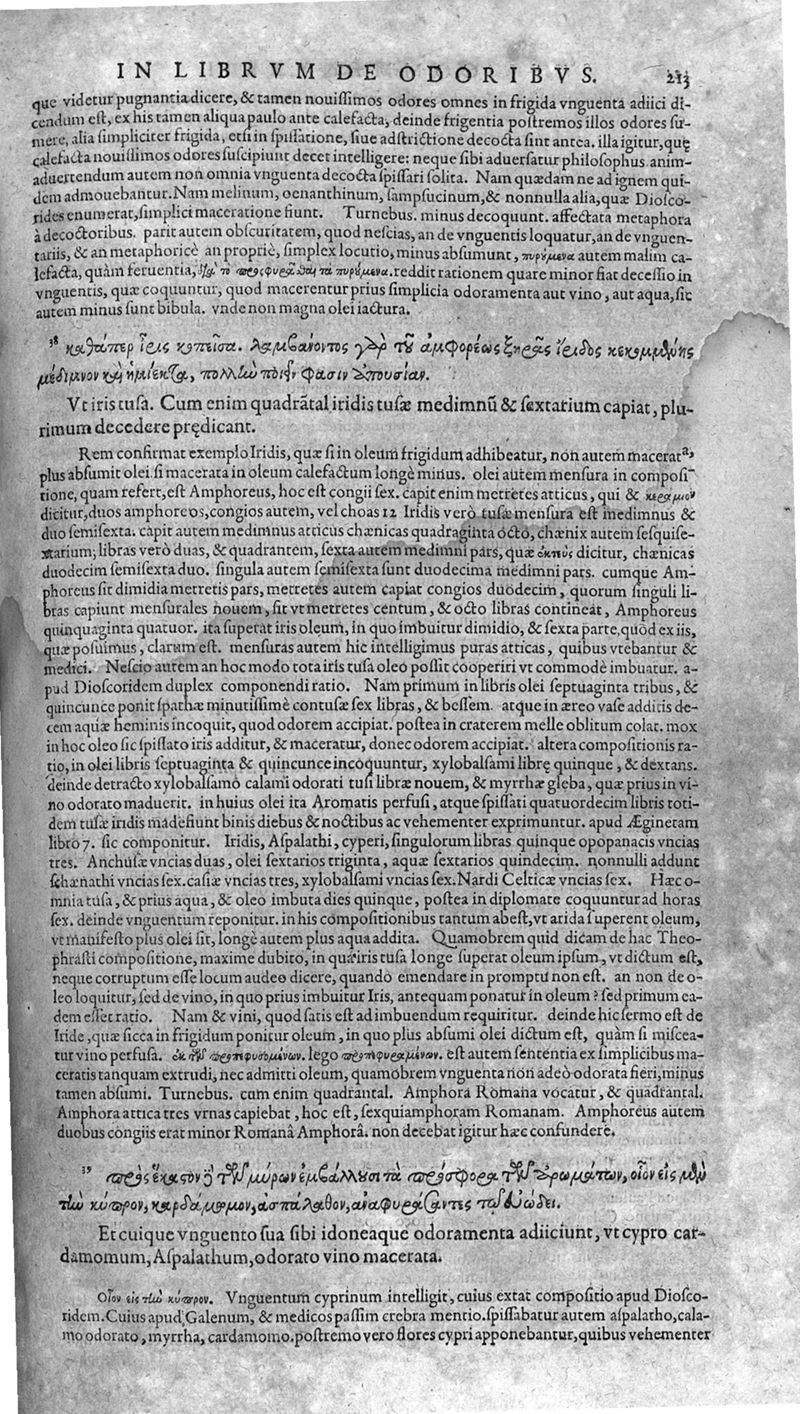 IN LIBRVM DE ODORIBVS. 213
que videtur pugnantia dicere, & tamen nouiſſimos odores omnes in frigida vnguenta adiici di-
cendum eſt, ex his tamen aliqua paulo ante calefacta, deinde frigentia poſtremos illos odores ſu-
mere, alia ſimpliciter frigida, etſi in ſpiſſatione, ſiue adſtrictione decocta ſint antea. illa igitur, quę
calefacta nouiſſimos odores ſuſcipiunt decet intelligere: neque ſibi aduerſatur philoſophus. anim-
aduertendum autem non omnia vnguenta decocta ſpiſſari ſolita. Nam quædam ne ad ignem qui-
dem admouebantur. Nam melinum, oenanthinum, ſampſucinum, & nonnulla alia, quæ Dioſco-
rides enumerat, ſimplici maceratione fiunt. Turnebus. minus decoquunt. affectata metaphora
à decoctoribus. parit autem obſcuritatem, quod neſcias, an de vnguentis loquatur, an de vnguen-
tariis, & an metaphoricè an propriè, ſimplex locutio, minus abſumunt, πυρούμενα autem malim ca-
lefacta, quàm feruentia, διὰ τὸ προςφυρᾶσθαι τὰ πυρούμενα. reddit rationem quare minor fiat deceſſio in
vnguentis, quæ coquuntur, quod macerentur prius ſimplicia odoramenta aut vino, aut aqua, ſic
autem minus ſunt bibula. vnde non magna olei iactura.
38 καθάπερ ἶρις κοπεῖσα. λαμβάνοντος γὰρ τοῦ ἀμφορέως ξηρᾶς ἴριδος κεκομμένης
μέδιμνον καὶ ἡμίεκτα, πολλὴν ποιεῖν φασιν ἀπουσίαν.
Vt iris tuſa. Cum enim quadrãtal iridis tuſæ medimnũ & ſextarium capiat, plu-
rimum decedere prędicant.
Rem confirmat exemplo Iridis, quæ ſi in oleum frigidum adhibeatur, non autem macerata,
plus abſumit olei. ſi macerata in oleum calefactum longè minus. olei autem menſura in compoſi-
tione, quam refert, eſt Amphoreus, hoc eſt congii ſex. capit enim metretes atticus, qui & κεράμιον
dicitur, duos amphoreos, congios autem, vel choas 12 Iridis verò tuſæ menſura eſt medimnus &
duo ſemiſexta. capit autem medimnus atticus chænicas quadraginta octo, chænix autem ſeſquiſe-
xtarium; libras verò duas, & quadrantem, ſexta autem medimni pars, quæ ἑκτεὺς dicitur, chænicas
duodecim ſemiſexta duo. ſingula autem ſemiſexta ſunt duodecima medimni pars. cumque Am-
phoreus ſit dimidia metretis pars, metretes autem capiat congios duodecim, quorum ſinguli li-
bras capiunt menſurales nouem, ſit vt metretes centum, & octo libras contineat, Amphoreus
quinquaginta quatuor. ita ſuperat iris oleum, in quo imbuitur dimidio, & ſexta parte, quod ex iis,
quæ poſuimus, clarum eſt. menſuras autem hic intelligimus puras atticas, quibus vtebantur &
medici. Neſcio autem an hoc modo tota iris tuſa oleo poſſit cooperiri vt commodè imbuatur. a-
pud Dioſcoridem duplex componendi ratio. Nam primum in libris olei ſeptuaginta tribus, &
quincunce ponit ſpathæ minutiſſimè contuſæ ſex libras, & beſſem. atque in æreo vaſe additis de-
cem aquæ heminis incoquit, quod odorem accipiat. poſtea in craterem melle oblitum colat. mox
in hoc oleo ſic ſpiſſato iris additur, & maceratur, donec odorem accipiat. altera compoſitionis ra-
tio, in olei libris ſeptuaginta & quincunce incoquuntur, xylobalſami librę quinque, & dextans.
deinde detracto xylobalſamo calami odorati tuſi libræ nouem, & myrrhæ gleba, quæ prius in vi-
no odorato maduerit. in huius olei ita Aromatis perfuſi, atque ſpiſſati quatuordecim libris toti-
dem tuſæ iridis madefiunt binis diebus & noctibus ac vehementer exprimuntur. apud Æginetam
libro 7. ſic componitur. Iridis, Aſpalathi, cyperi, ſingulorum libras quinque opopanacis vncias
tres. Anchuſæ vncias duas, olei ſextarios triginta, aquæ ſextarios quindecim. nonnulli addunt
ſchænathi vncias ſex. caſiæ vncias tres, xylobalſami vncias ſex. Nardi Celticæ vncias ſex. Hæc o-
mnia tuſa, & prius aqua, & oleo imbuta dies quinque, poſtea in diplomate coquuntur ad horas
ſex. deinde vnguentum reponitur. in his compoſitionibus tantum abeſt, vt arida ſuperent oleum,
vt manifeſto plus olei ſit, longè autem plus aqua addita. Quamobrem quid dicam de hac Theo-
phraſti compoſitione, maxime dubito, in qua iris tuſa longe ſuperat oleum ipſum, vt dictum eſt,
neque corruptum eſſe locum audeo dicere, quando emendare in promptu non eſt. an non de o-
leo loquitur, ſed de vino, in quo prius imbuitur Iris, antequam ponatur in oleum? ſed primum ea-
dem eſſet ratio. Nam & vini, quod ſatis eſt ad imbuendum requiritur. deinde hic ſermo eſt de
Iride, quæ ſicca in frigidum ponitur oleum, in quo plus abſumi olei dictum eſt, quàm ſi miſcea-
tur vino perfuſa. ἐκ τῶν προπεφυσομένων. lego προπεφυραμένων. eſt autem ſententia ex ſimplicibus ma-
ceratis tanquam extrudi, nec admitti oleum, quamobrem vnguenta non adeò odorata fieri, minus
tamen abſumi. Turnebus. cum enim quadrantal. Amphora Romana vocatur, & quadrantal.
Amphora attica tres vrnas capiebat, hoc eſt, ſexquiamphoram Romanam. Amphoreus autem
duobus congiis erat minor Romanâ Amphorâ. non decebat igitur hæc confundere.
39 πρὸς ἕκαστον δὲ τῶν μύρων ἐμβάλλουσι τὰ πρόσφορα τῶν ἀρωμάτων, οἷον εἰς μὲν
τὴν κύπρον, καρδάμωμον, ἀσπάλαθον, ἀναφυράσαντες τῷ εὐώδει.
Et cuique vnguento ſua ſibi idoneaque odoramenta adiiciunt, vt cypro car-
damomum, Aſpalathum, odorato vino macerata.
Οἷον εἰς τὴν κύπρον. Vnguentum cyprinum intelligit, cuius extat compoſitio apud Dioſco-
ridem. Cuius apud Galenum, & medicos paſſim crebra mentio. ſpiſſabatur autem aſpalatho, cala-
mo odorato, myrrha, cardamomo. poſtremo vero flores cypri apponebantur, quibus vehementer